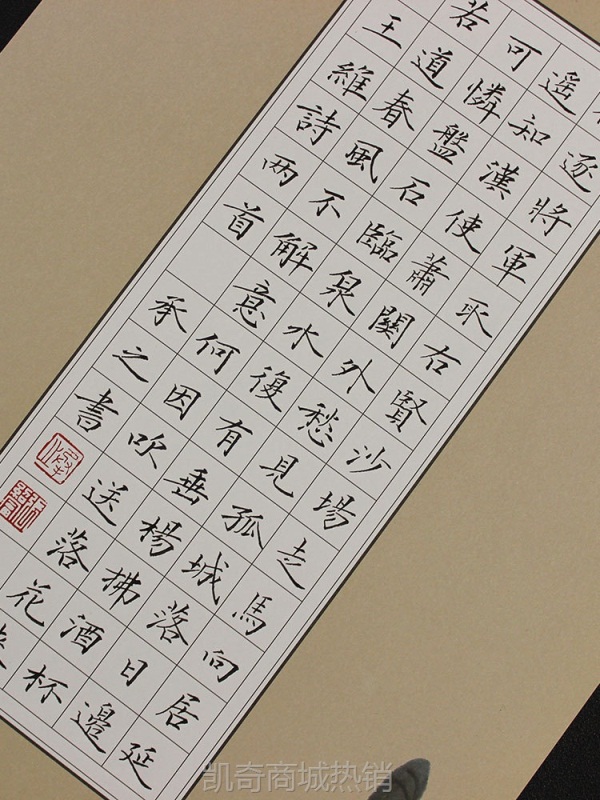 逐將軍取右賢沙場走馬向居延
遙知漢使蕭關外愁見孤城落日邊
可憐盤石臨泉水復有垂楊拂酒杯
若道春風不解意何因吹送落花
王維詩兩首 承之書
凯奇商城热销